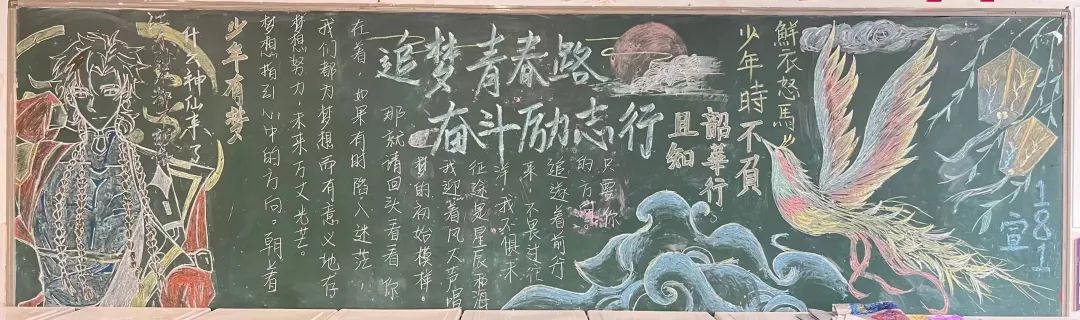 什么神仙来了
少年有梦
梦想指引心中的方向。朝着
梦想努力,未来万丈光芒。
我们都为梦想而有意义地存
在着,如果有时陷入迷茫,
那就请回头看看你
梦的初始模样。
我迎着风大声唱
征途是星辰和海
洋,我不惧未
来,不畏过往
追逐着前行
的方向
只要你
追梦青春路
奋斗励志行
鮮衣怒馬
少年時不負
韶華行
且知
181
宣